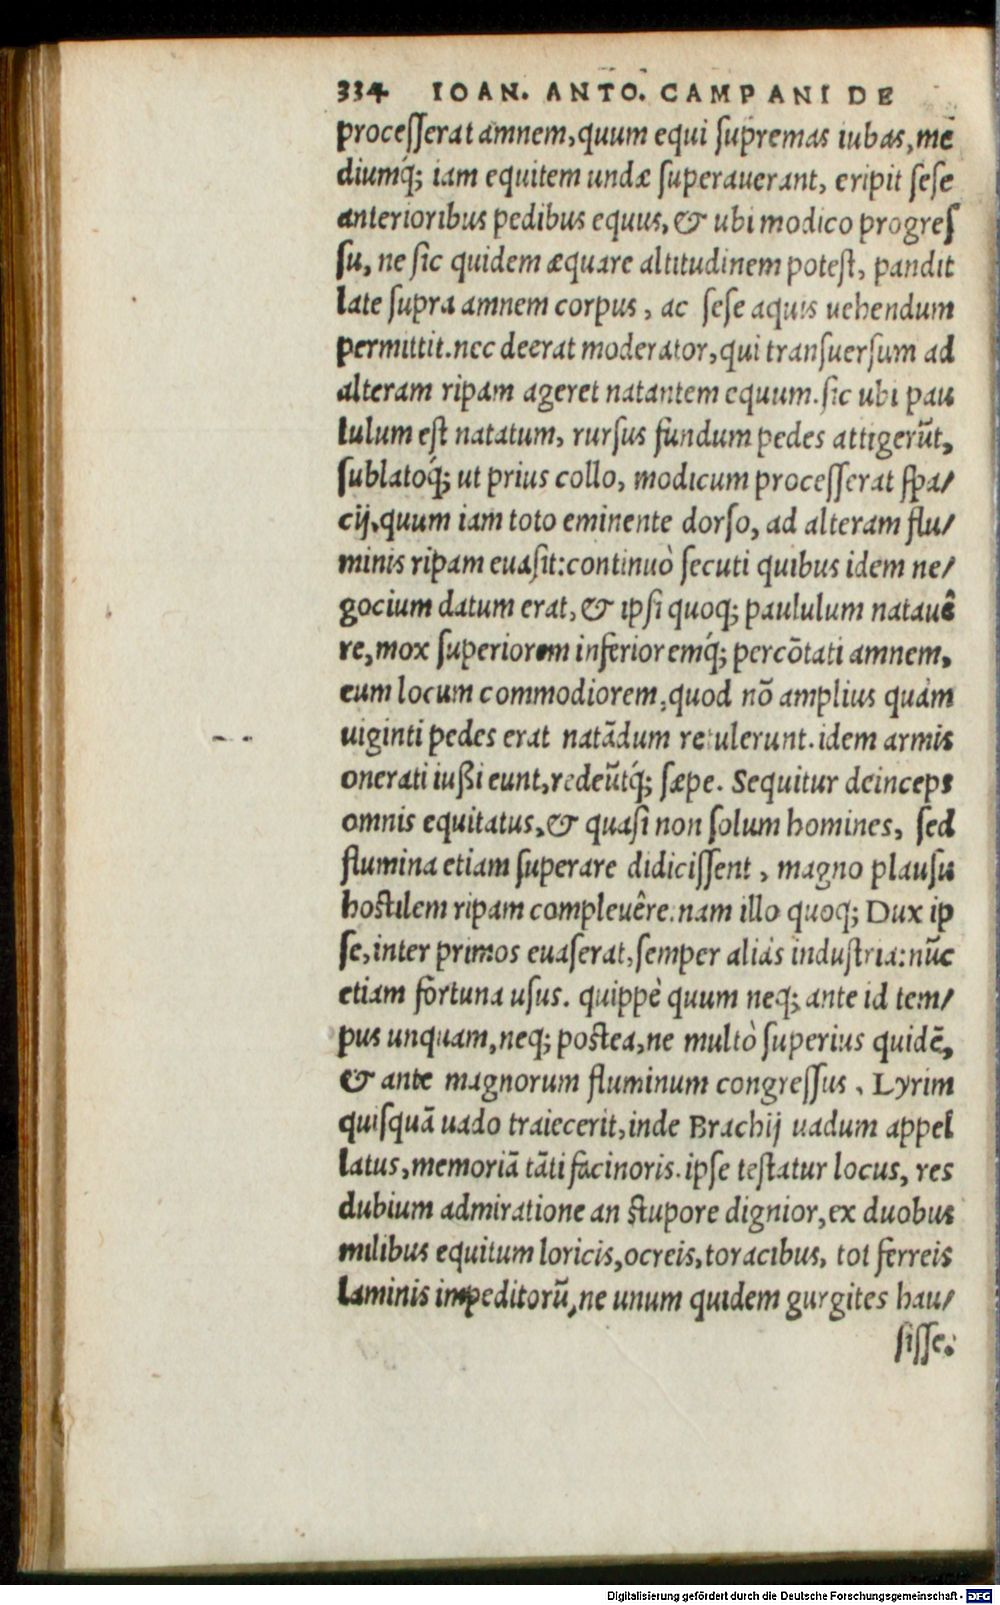 334 IOAN. ANTO. CAMPANI DE
processerat amnem, quum equi supremas iubas, mē
diumq́; iam equitem undæ superauerant, eripit sese
anterioribus pedibus equus, & ubi modico progres
su, ne sic quidem æquare altitudinem potest, pandit
late supra amnem corpus, ac sese aquis uehendum
permittit. nec deerat moderator, qui transuersum ad
alteram ripam ageret natantem equum. sic ubi pau
lulum est natatum, rursus fundum pedes attigerūt,
sublatoq́; ut prius collo, modicum processerat spa/
cij, quum iam toto eminente dorso, ad alteram flu/
minis ripam euasit: continuò secuti quibus idem ne/
gocium datum erat, & ipsi quoq; paululum natauê
re, mox superiorem inferioremq́; percōtati amnem,
eum locum commodiorem, quod nō amplius quàm
uiginti pedes erat natādum retulerunt. idem armis
onerati iußi eunt, redeūtq́; sæpe. Sequitur deinceps
omnis equitatus, & quasi non solum homines, sed
flumina etiam superare didicissent, magno plausu
hostilem ripam compleuêre. nam illo quoq; Dux ip
se, inter primos euaserat, semper aliàs industria: nūc
etiam fortuna usus. quippè quum neq; ante id tem/
pus unquam, neq; postea, ne multò superius quidē,
& ante magnorum fluminum congressus, Lyrim
quisquā uado traiecerit, inde Brachij uadum appel
latus, memoriā tāti facinoris. ipse testatur locus, res
dubium admiratione an stupore dignior, ex duobus
milibus equitum loricis, ocreis, toracibus, tot ferreis
laminis impeditorū, ne unum quidem gurgites hau/
sisse.
Digitalisierung gefördert durch die Deutsche Forschungsgemeinschaft - DFG